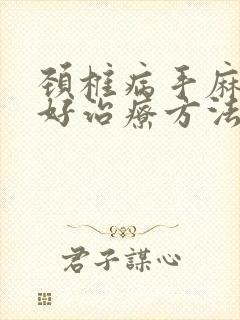 颈椎病手麻
好治療方法
君子謀心